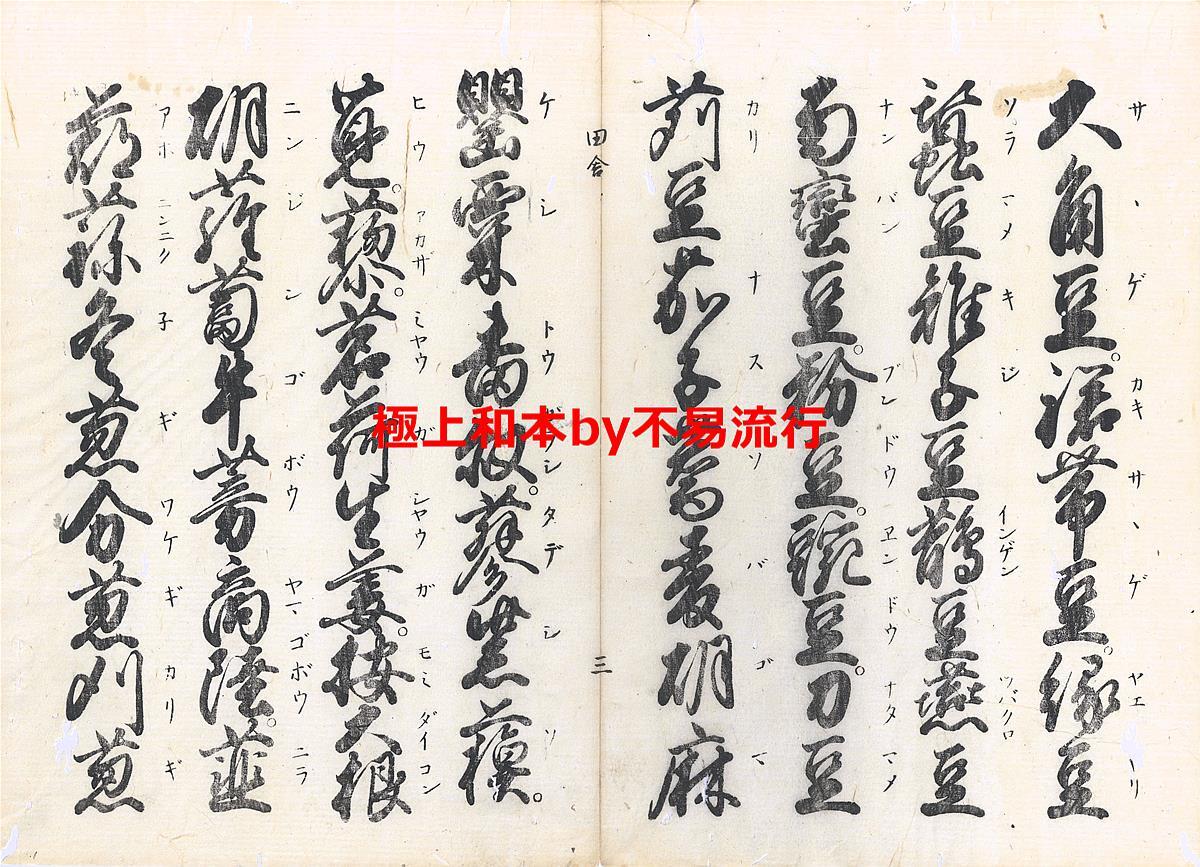 大角豆。裙帯豆。緑豆
サヽゲ カキサヽゲ ヤエナリ
蚕豆雉子豆鶴豆燕豆
ソラマメ キジ インゲン ツバクロ
南蛮豆。粉豆豌豆。刀豆
ナンバン ブンドウ ヱンドウ ナタマメ
苅豆茄子蕎麦胡麻
カリ ナス ソバ ゴマ
田舎 三
罌粟
ケシ トウガラシ タデ シソ
莧。藜。茗荷生姜。大根
ヒウ アカザ ミヤウガ シヤウガ モミダイコン
胡蘿蔔牛蒡商陸。韮
ニンジン ゴボウ ヤマゴボウ ニラ
冬葱分葱刈葱
アホニンニク 子ギ ワケギ カリギ
極上和本by不易流行